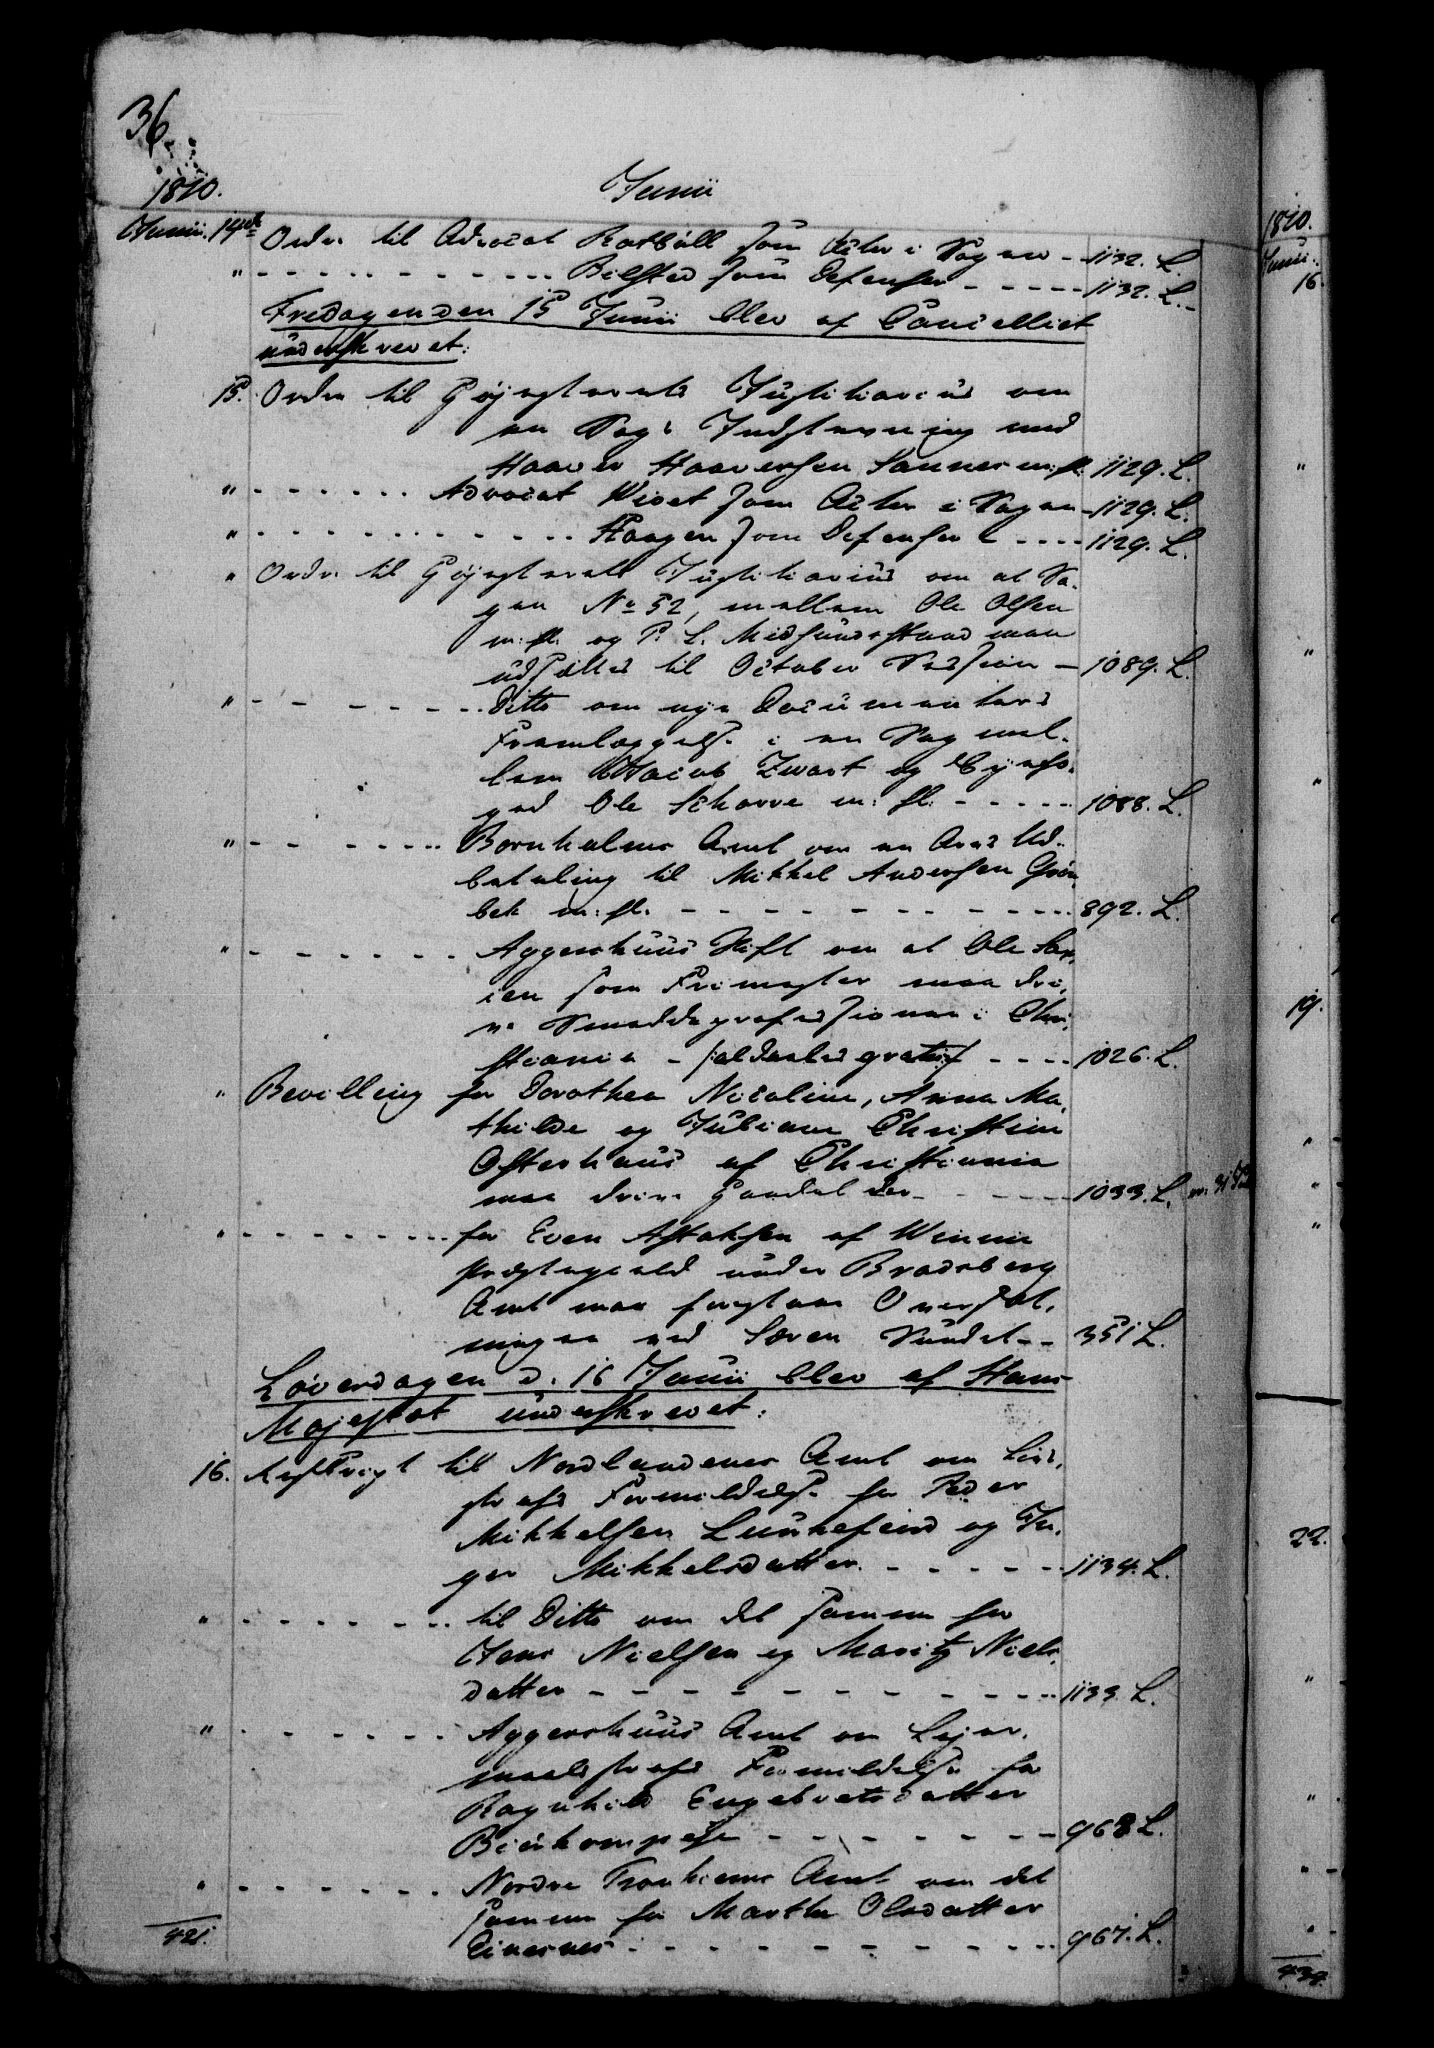 36.
1810.
Junii
Junii. 14de Ordre til Advocat Rotbøll som Actor i Sagen - 1132. L.
" - - - - - - Bilsted som Defensor - - - - - 1132. L.
Fredagen den 15 Junii blev af Cancelliet
underskrevet:
15. Ordre til Høyesterets Justitiarius om
en Sags Indstevning med
Haaver Haaversen Sannes m: fl. 1129. L.
" - - - - - - Advocat Wivet som Actor i Sagen - 1129. L.
" - - - - - - Haagen som Defensor - - - - 1129. L.
" Ordre til Høyesterets Justitiarius om at Sa-
gen No 52, mellem Ole Olsen
m: fl. og P. L. Midsund maa
udsættes til October Session - 1089. L.
" - - - - - - Ditto om nye Documenters
Fremlæggelse i en Sag mel-
lem Jacob Zwart og Byefo-
ged Ole Scharre m: fl. - - - - - 1088. L.
" - - - - - - Bornholms Amt om en Arvs Ud-
betaling til Mikkel Andersen Grøn-
bek m: fl. - - - - - - - - - 892. L.
" - - - - - - Aggershuus Stift om at Ole Lar-
sen som Frimester maa dri-
ve Smedde professionen i Chri-
stiania - (aldeeles gratis) - - - - 1026. L.
" Bevilling for Dorothea Nicoline, Anna Ma-
thilde og Juliane Christine
Osterhaus af Christiania
maa drive Handel der - - - - 1033. L.
" - - - - - - for Even Aslaksen af Winnie
Præstegield under Bradsberg
Amt maa forestaae Oversæt-
ningen ved Søren Sundet - - 351 L.
Løverdagen d. 16 Junii blev af Hans
Majestæt underskrevet:
16. Rescript til Nordlandenes Amt om Livs-
strafs Formildelse for Peder
Mikkelsen Lunkefeird og In-
ger Mikkelsdatter. - - - - - 1134. L.
" - - - - - - til Ditto om det samme for
Jens Nielsen og Maritz Niels-
datter - - - - - - - - - 1133. L.
" - - - - - - Aggershuus Amt om Lejer-
maalsstrafs Formildelse for
Ragnhild Engebretsdatter
- - - - - - - 968 L.
" - - - - - - Nordre Tronhiems Amt om det
samme for Martha Olsdatter
- - - - - - - - 967. L.
421.
1810.
Junii.
16.
"
"
"
19.
"
"
"
22.
"
"
"
"
434.